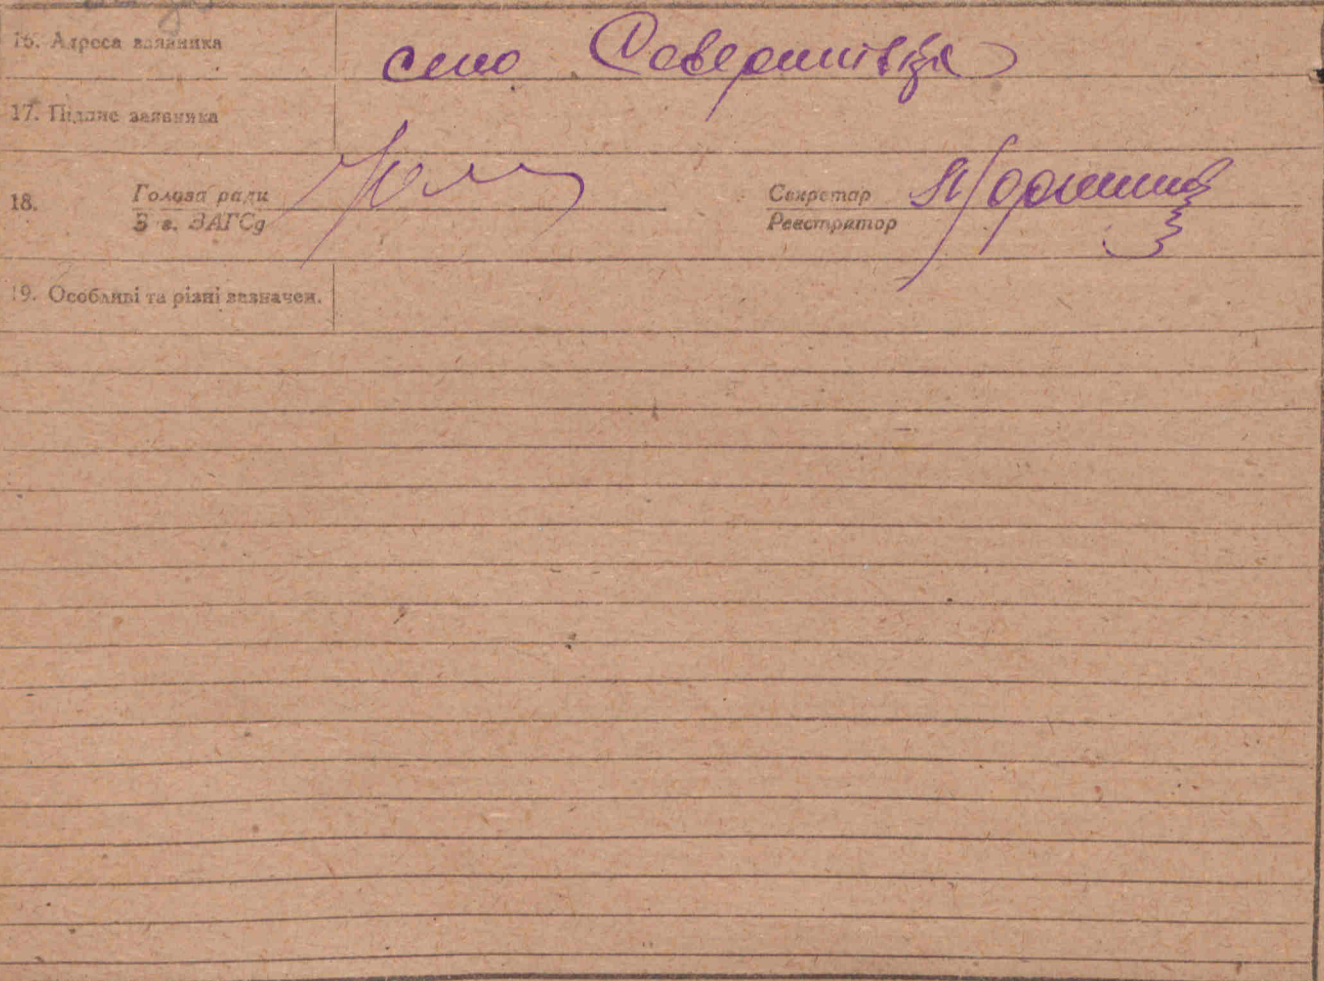 16. Адреса заявника село Северинівка
17. Підпис заявника
18. Голова ради Секретар
В. в. ЗАГСд Реєстратор
19. Особливі та різні зазначен.